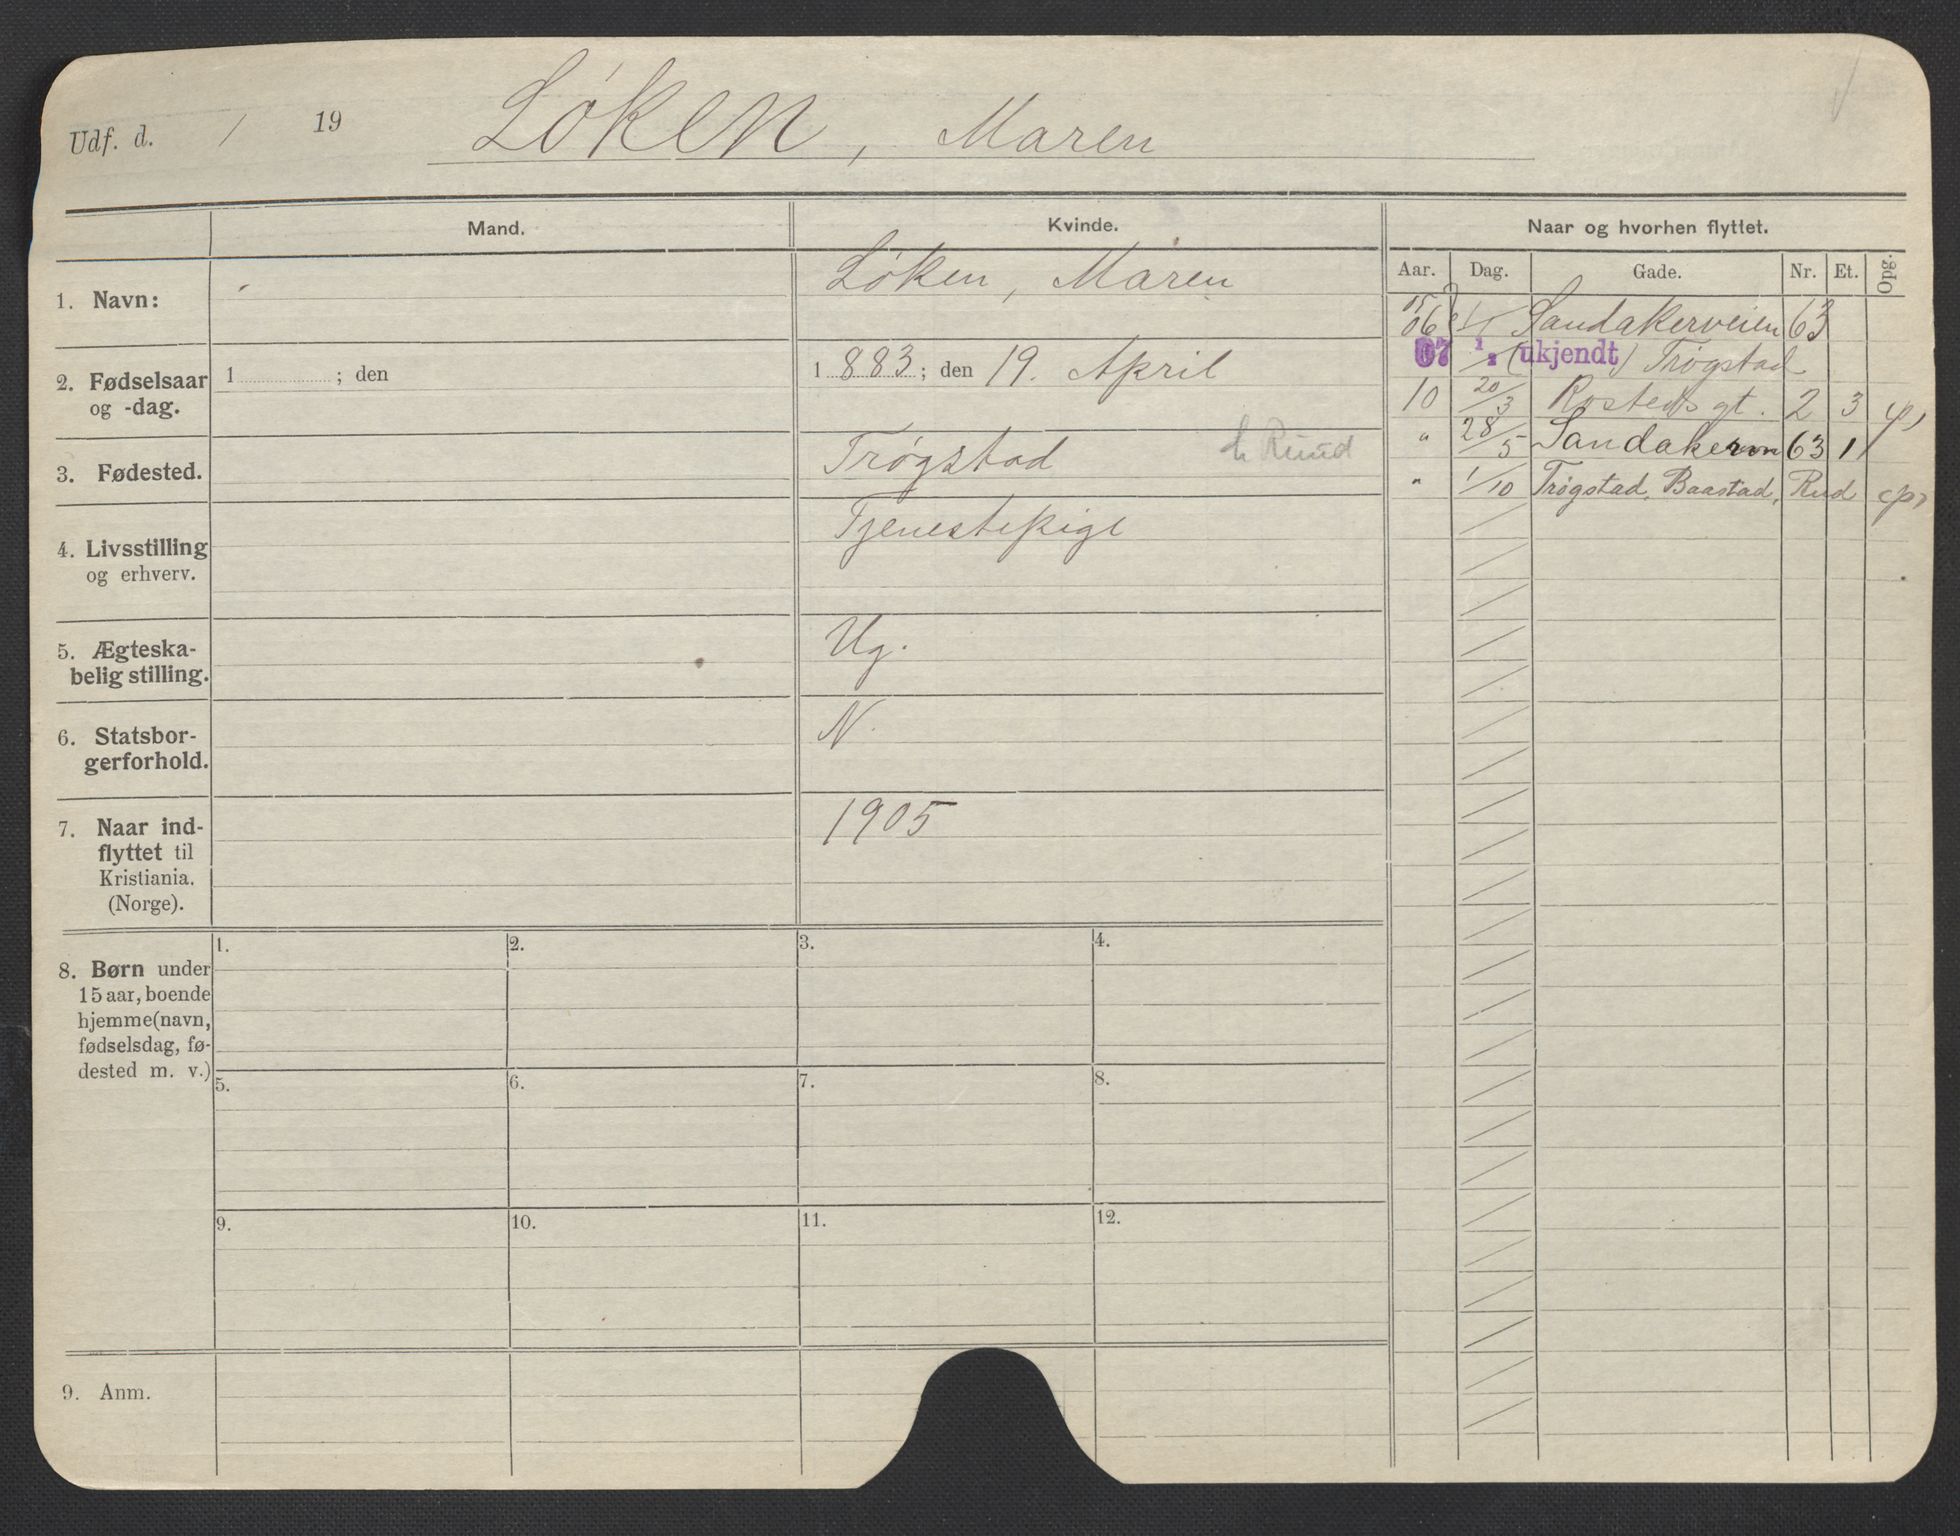 Udf. d. / 19 Løken, Maren
Mand. Kvinde. Naar og hvorhen flyttet.
Aar. Dag. Gade. Nr. Et. Opg.
1. Navn: Løken, Maren
2. Fødselsaar og -dag. 1 ; den 1883; den 19. April
3. Fødested. Trøgstad Ruud
4. Livsstilling og erhverv. Tjenestepige
5. Ægteska-
belig stilling. Ug.
6. Statsbor-
gerforhold. N.
7. Naar ind-
flyttet til
Kristiania.
(Norge). 1905
05
06 Sandakerveien 63
07 (ukjendt) Trøgstad
10 20/3 Rosteds gt. 2 3
" 28/5 Sandakervn 63 1
" 1/10 Trøgstad, Baastad, Rud
8. Børn under
15 aar, boende
hjemme (navn,
fødselsdag, fø-
dested m. v.)
1. 2. 3. 4.
5. 6. 7. 8.
9. 10. 11. 12.
9. Anm.